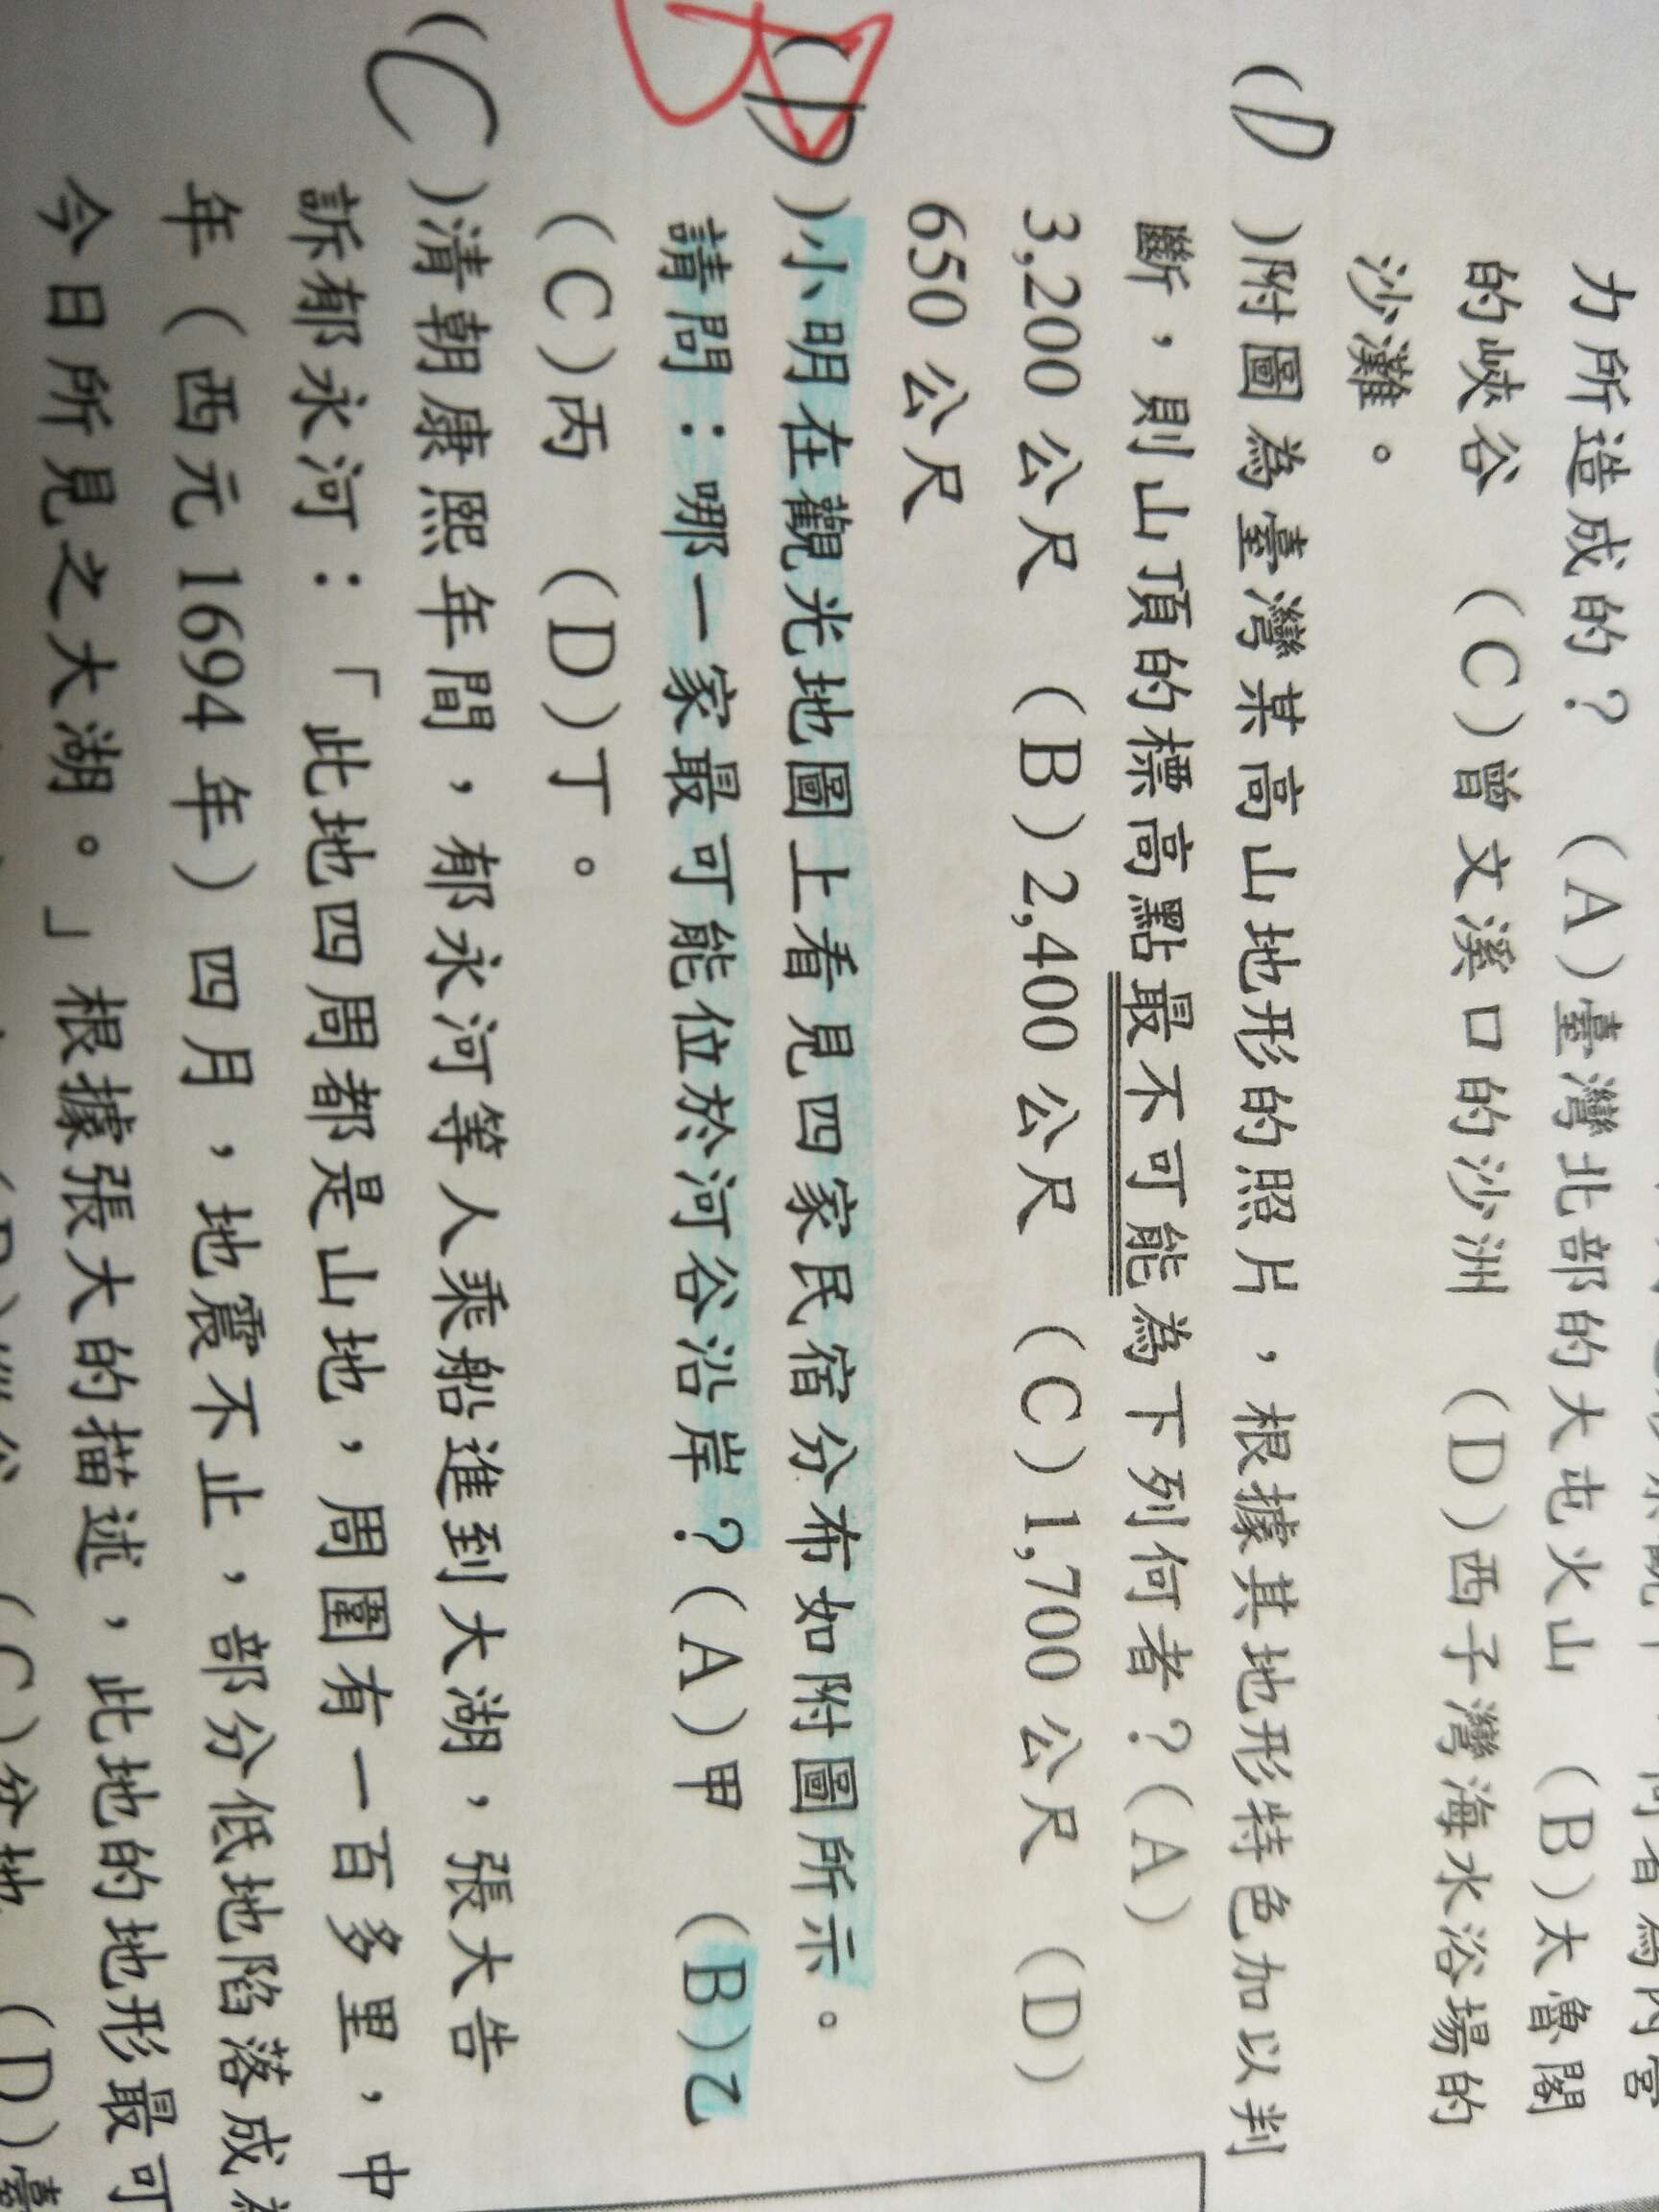 力所造成的?(A)臺灣北部的大屯火山 (B)太魯閣
的峽谷 (C)曾文溪口的沙洲 (D)西子灣海水浴場的
沙灘。
(D)附圖為臺灣某高山地形的照片,根據其地形特色加以判
斷,則山頂的標高點最不可能為下列何者?(A)
3,200公尺 (B)2,400公尺 (C)1,700公尺 (D)
650公尺
(D)小明在觀光地圖上看見四家民宿分布如附圖所示。
B
請問:哪一家最可能位於河谷沿岸?(A)甲 (B)乙
(C)丙 (D)丁。
(C)清朝康熙年間,郁永河等人乘船進到大湖,張大告
訴郁永河:「此地四周都是山地,周圍有一百多里,中
年(西元1694年)四月,地震不止,部分低地陷落成為
今日所見之大湖。」根據張大的描述,此地的地形最可
(C)盆地 (D)臺